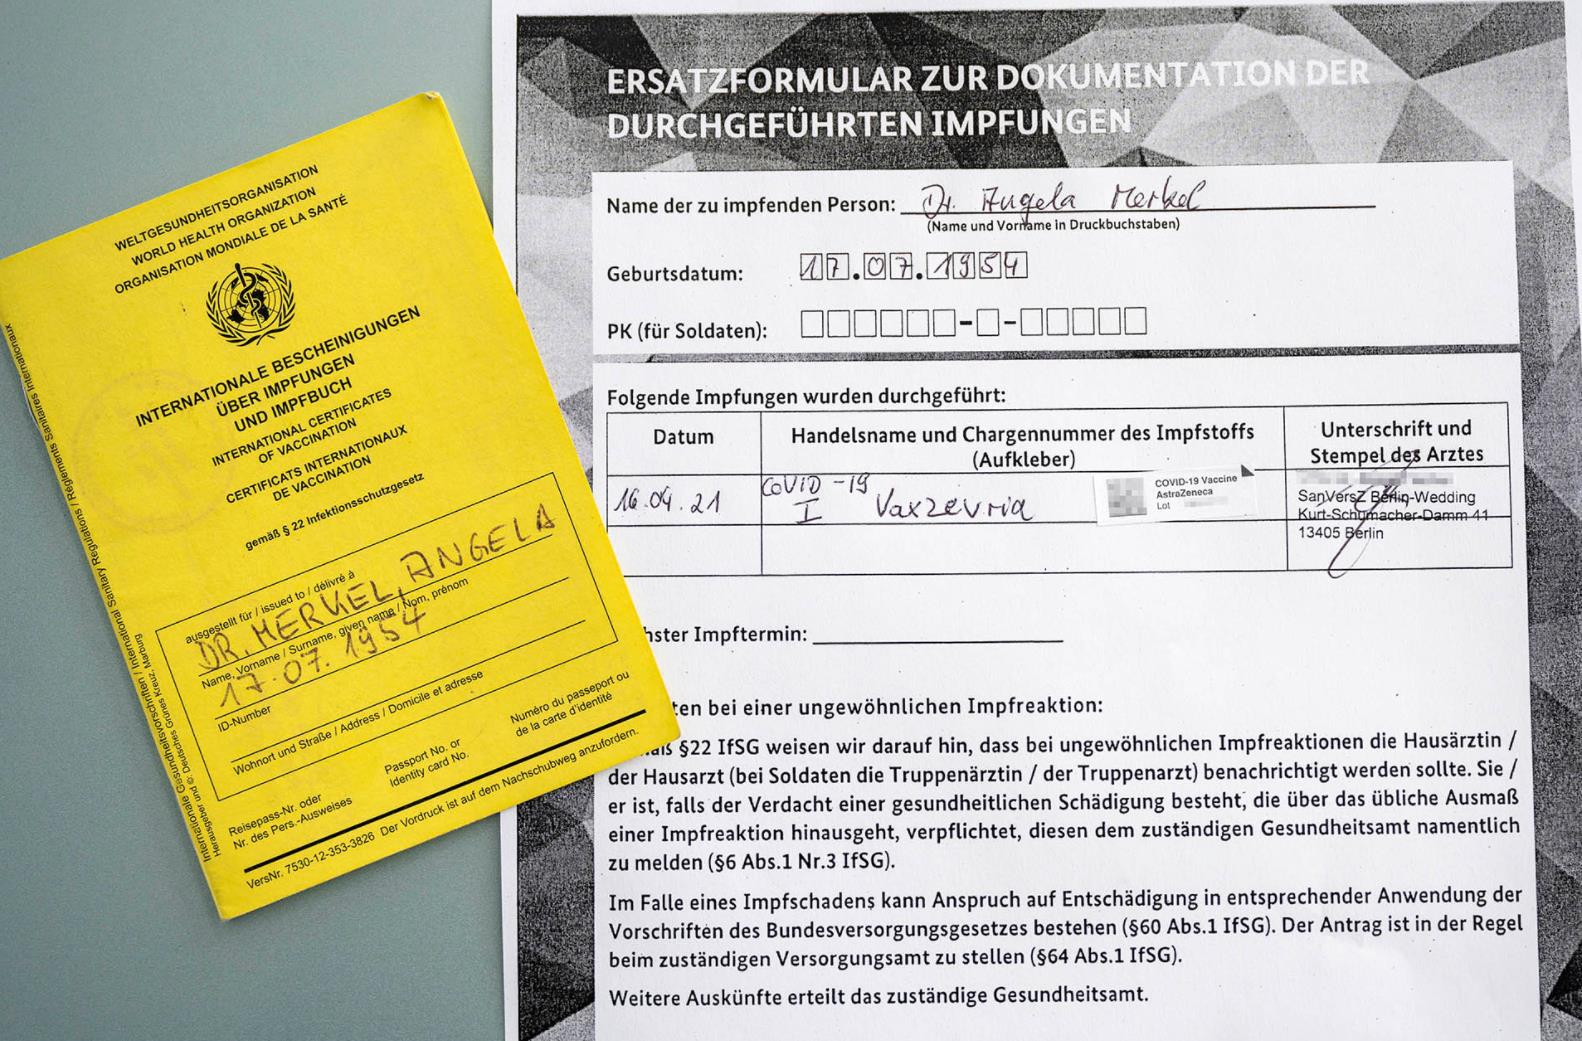 WELTGESUNDHEITSORGANISATION
WORLD HEALTH ORGANIZATION
ORGANISATION MONDIALE DE LA SANTÉ
INTERNATIONALE BESCHEINIGUNGEN
ÜBER IMPFUNGEN
UND IMPFBUCH
INTERNATIONAL CERTIFICATES
OF VACCINATION
CERTIFICATS INTERNATIONAUX
DE VACCINATION
gemäß § 22 Infektionsschutzgesetz
ausgestellt für / issued to / délivré à
DR. MERKEL, ANGELA
Name, Vorname / Surname, given name / Nom, prénom
17.07.1954
ID-Number
Wohnort und Straße / Address / Domicile et adresse
Reisepass-Nr. oder
Nr. des Pers.-Ausweises
Passport No. or
Identity card No.
Numéro du passeport ou
de la carte d'identité
VersNr. 7530-12-353-3826 Der Vordruck ist auf dem Nachschubweg anzufordern.
Internationale Gesundheitsvorschriften / International Sanitary Regulations / Règlements Sanitaires Internationaux
Herausgeber und ©: Deutsches Grünes Kreuz, Marburg
ERSATZFORMULAR ZUR DOKUMENTATION DER
DURCHGEFÜHRTEN IMPFUNGEN
Name der zu impfenden Person: Dr. Angela Merkel
(Name und Vorname in Druckbuchstaben)
Geburtsdatum: 17.07.1954
PK (für Soldaten):
Folgende Impfungen wurden durchgeführt:
Datum
Handelsname und Chargennummer des Impfstoffs
(Aufkleber)
Unterschrift und
Stempel des Arztes
16.04.21
COVID-19
I Vaxzevria
COVID-19 Vaccine
AstraZeneca
Lot
SanVersZ Berlin-Wedding
Kurt-Schumacher-Damm 41
13405 Berlin
hster Impftermin:
ten bei einer ungewöhnlichen Impfreaktion:
äß §22 IfSG weisen wir darauf hin, dass bei ungewöhnlichen Impfreaktionen die Hausärztin /
der Hausarzt (bei Soldaten die Truppenärztin / der Truppenarzt) benachrichtigt werden sollte. Sie /
er ist, falls der Verdacht einer gesundheitlichen Schädigung besteht, die über das übliche Ausmaß
einer Impfreaktion hinausgeht, verpflichtet, diesen dem zuständigen Gesundheitsamt namentlich
zu melden (§6 Abs.1 Nr.3 IfSG).
Im Falle eines Impfschadens kann Anspruch auf Entschädigung in entsprechender Anwendung der
Vorschriften des Bundesversorgungsgesetzes bestehen (§60 Abs.1 IfSG). Der Antrag ist in der Regel
beim zuständigen Versorgungsamt zu stellen (§64 Abs.1 IfSG).
Weitere Auskünfte erteilt das zuständige Gesundheitsamt.